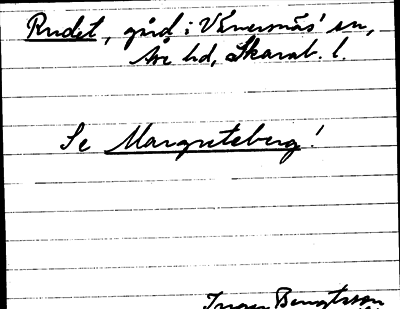 Rudet, gård i Vänersnäs' sn,
Åse hd, Skarab. l.
Se Margreteberg!
Ingen Bengtsson